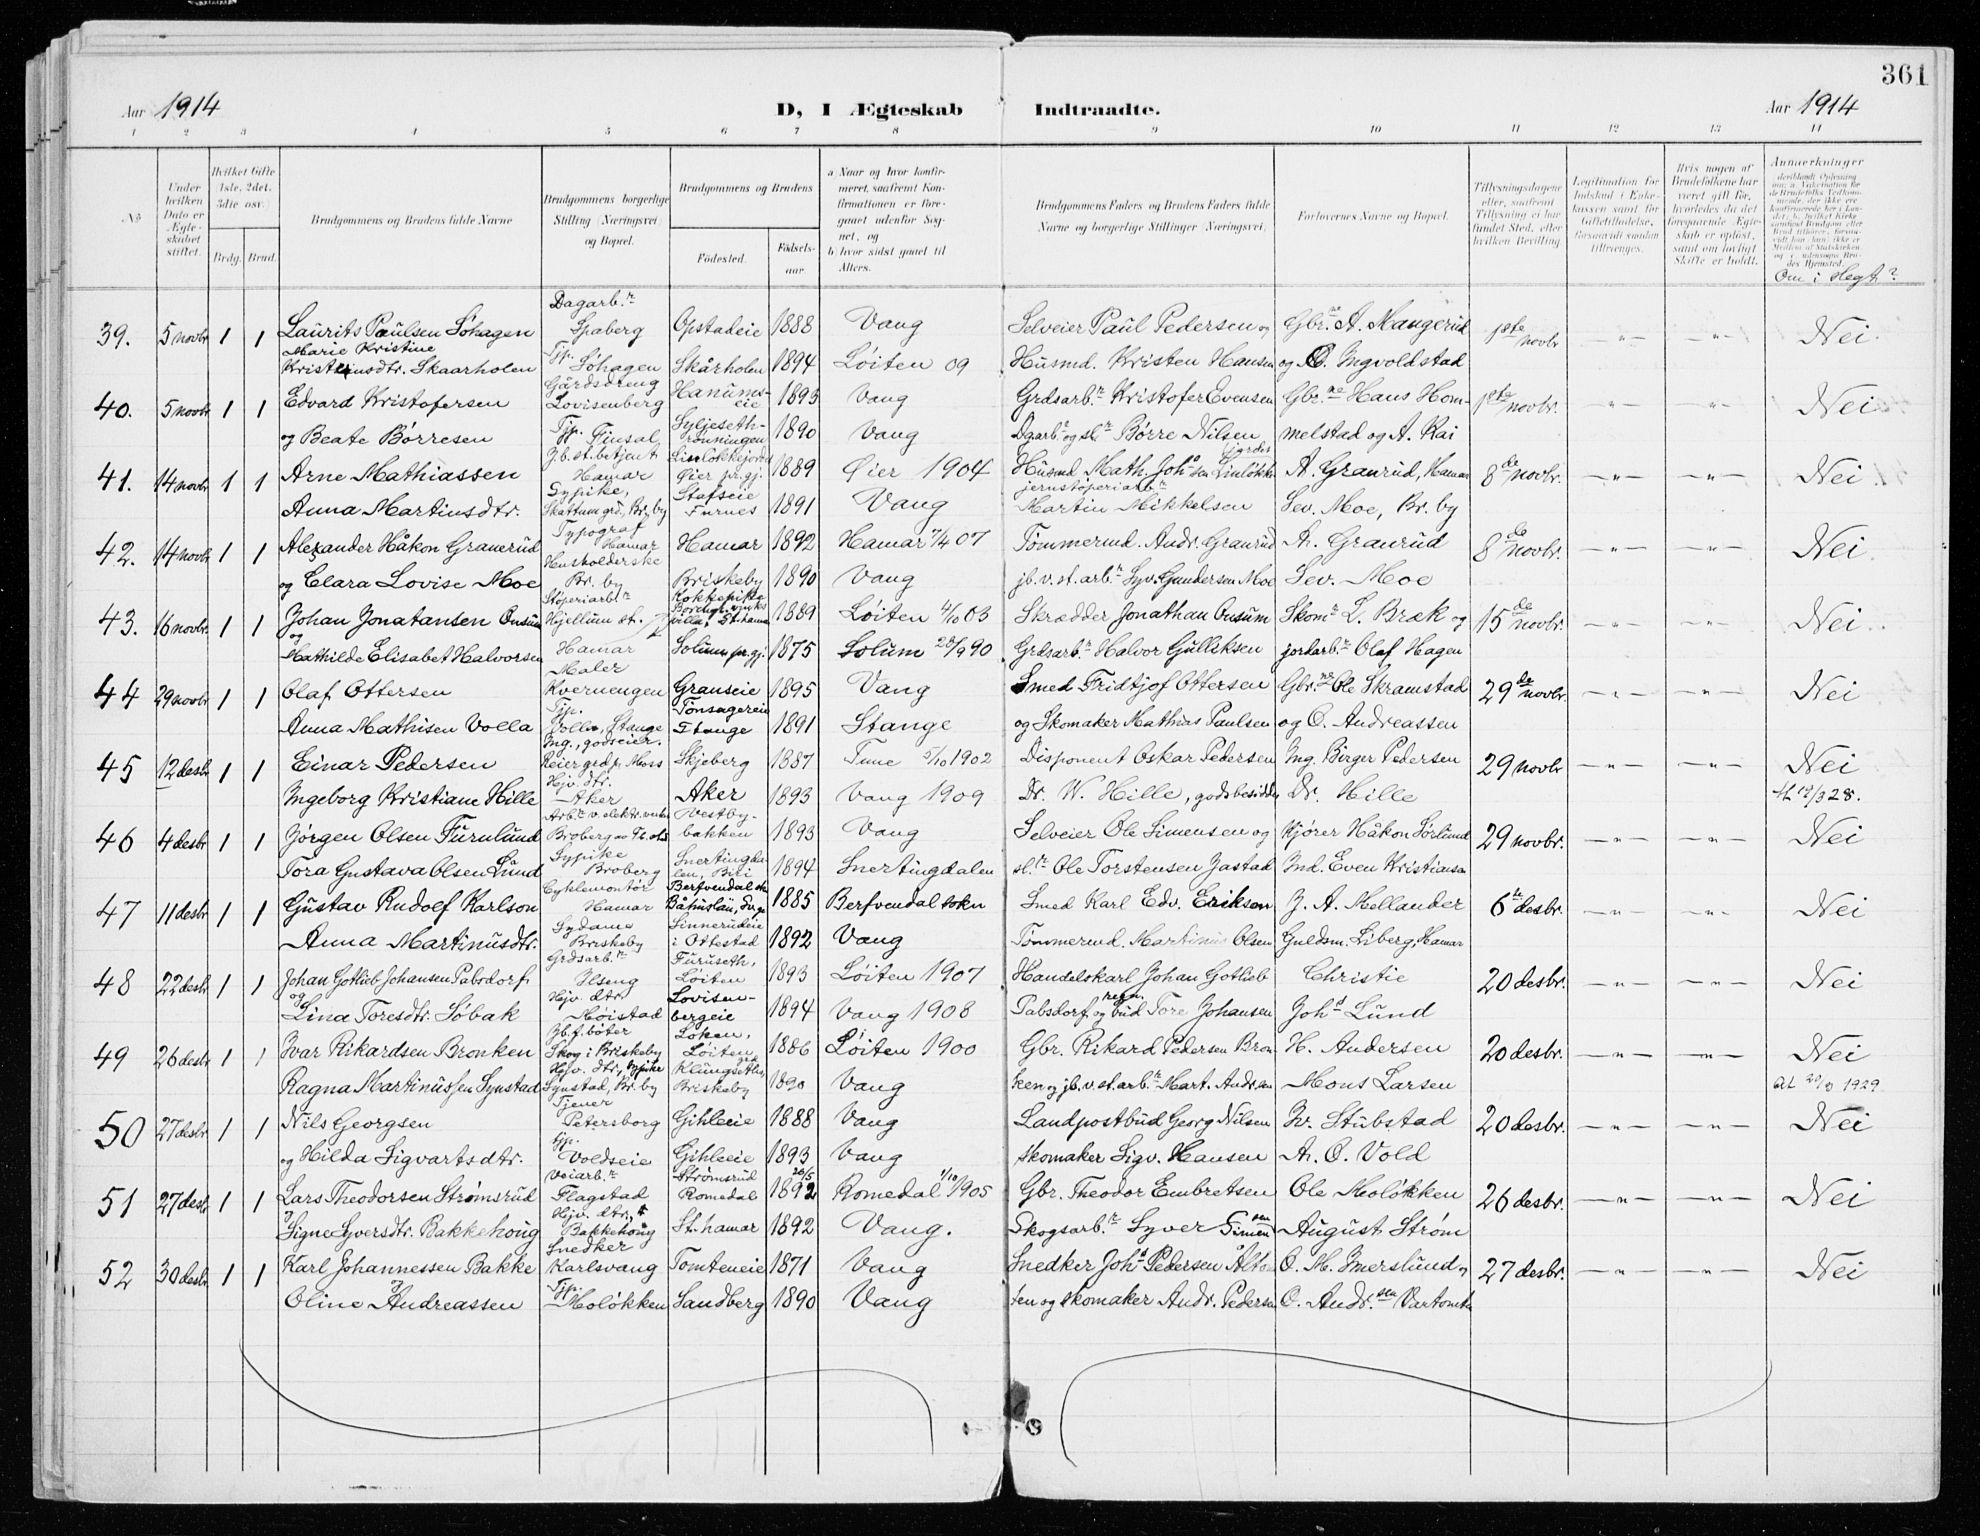 1914
361
Aar 1914 D, I Ægteskab Indtraadte. Aar 1914
1 2 3 4 5 6 7 8 9 10 11 12 13 14
No
Under hvilken Dato er Ægteskabet stiftet.
Hvilket Gifte 1ste, 2det, 3die osv.
Brdg. Brud.
Brudgommens og Brudens fulde Navne
Brudgommens borgerlige Stilling (Næringsvei) og Bopæl.
Brudgommens og Brudens
Fødested.
Fødselsaar.
a. Naar og hvor konfirmeret, saafremt Konfirmationen er foregaaet udenfor Sognet, og
b. hvor sidst gaaet til Alters.
Brudgommens Faders og Brudens Faders fulde Navne og borgerlige Stillinger (Næringsvei)
Forlovernes Navne og Bopæl.
Tillysningsdagene eller, saafremt Tillysning ei har fundet Sted, efter hvilken Bevilling
Legitimation for Indskud i Enkekassen samt for Giftetilladelse, forsaavidt saadan tiltrænges.
Hvis nogen af Brudefolkene har været gift før, hvorledes da det foregaaende Ægteskab er opløst, samt om lovligt Skifte er holdt.
Anmærkninger
Om i slegt?
39. 5 novbr 1 1 Laurits Paulsen Sõhagen Dagarb.r Spaberg Opstadeie 1888 Vang Selveier Paul Pedersen og Gbr.ne A. Mangerud 1ste novbr — " — — " — Nei.
Marie Kristine Kristensdtr. Skaarholen Tjp. Sõhagen Skårholen 1894 Løiten 09 Husmd. Kristen Hansen og O. Ingvoldstad
40. 5 novbr 1 1 Edvard Kristofersen Gårdsdreng Lovisenberg Hanumseie 1893 Vang Grdsarb.r Kristofer Evensen Gbr.ne Hans Hom- 1ste novbr. — " — — " — Nei
og Beate Børresen Tjp. Finsal Syljeseth-rønningen 1890 Vang Dagarb.r og sl.r Børre Nilsen melstad og A. Rai
41. 14 novbr 1 1 Arne Mathiassen Jb.st.betjent Hamar Øier pr.gj. 1889 Øier 1904 Husmd Math. Joh.sen Linløkke A. Granrud, Hamar 8de novbr. — " — — " — Nei
Anna Martinsdtr. Sypike, Skattum grd, Br.by Stafseie Furnes 1891 Vang jernstøperiarb.r Martin Mikkelsen Sev. Moe, Br. by
42. 14 novbr 1 1 Alexander Håkon Granerud Typograf Hamar Hamar 1892 Hamar /4 07 Tømmermd. Andr. Granrud A. Granrud 8de novbr. — " — — " — Nei
og Clara Lovise Moe Husholderske Br. by Briskeby 1890 Vang jb. v. st. arb.r Syv. Gundersen Moe Sev. Moe
43. 16 novbr. 1 1 Johan Jonatansen Onsum Støperiarb.r Hjellum st. 1889 Løiten 4/10 03 Skrædder Jonathan Onsum Skom.r L. Bræk og 15de novbr. — " — — " — Nei
og Mathilde Elisabet Halvorsen Kokkepike Hamar Solum pr.gj. 1875 Solum 28/9 90 Grdsarb.r Halvor Gulliksen jordarb.r Olaf Hagen
44 29 novbr 1 1 Olaf Ottersen Maler Kvernengen Granseie 1895 Vang Smed Fridtjof Ottersen Gbr.ne Ole Skramstad 29de novbr — " — — " — Nei
Anna Mathisen Volla Tjp. Volla, Stange Tønsagereie Stange 1891 Stange og Skomaker Mathias Paulsen og O. Andreassen
45 12 desbr 1 1 Einar Pedersen Ing., godseier. Reier grd pr Moss Skjeberg 1887 Tune 5/10 1902 Disponent Oskar Pedersen Ing. Birger Pedersen 29 novbr — " — — " — Nei
Ingeborg Kristiane Hille Hjv. dtr. Aker Aker 1893 Vang 1909 Dr. W. Hille, godsbesidder Dr. Hille 19/3 28.
46 4 desbr 1 1 Jørgen Olsen Furulund Broberg Vestby-bakken 1893 Vang Selveier Ole Simensen og Kjører Håkon Sørlund 29 novbr. — " — — " — Nei
Tora Gustava Olsen Lund Sypike Broberg Snertingdalen, Biri 1894 Snertingdalen sl.r Ole Torstensen Jastad Ind. Even Kristiansen
47 11 desbr 1 1 Gustav Rudolf Karlson Cyklemontør Hamar Berfvendal 1885 Berfvendal sokn Smed Karl Edv. Erikson J. A. Mellander 6te desbr. — " — — " — Nei
Anna Martinusdtr. Sydame Briskeby Sinnerudeie i Ottestad 1892 Vang Tømmermd. Martinus Olsen Guldsm. Liberg, Hamar
48 22 desbr 1 1 Johan Gotlieb Johansen Pabsdorf Grdsarb.r Ilseng Furuseth, Løiten 1893 Løiten 1907 Handelskarl Johan Gotlieb Christie 20 desbr. — " — — " — Nei
og Lina Toresdtr. Sõbak Hjv. dtr Høistad Lovisen-bergeie 1894 Vang 1908 Pabsdorf og bud Tore Johansen Joh.s Lund
49 26 desbr 1 1 Ivar Rikardsen Bronken Skog i Briskeby Løken, Løiten 1886 Løiten 1900 Gbr. Rikard Pedersen Bron H. Andersen 20 desbr. — " — — " — Nei
Ragna Martinussen Synstad Hjv. dtr, sypike Synstad, Br. by Briskeby 1890 Vang ken og jb. v. st. arb.r Mart. Andr.sen Mons Larsen at 1929
50 27 desbr 1 1 Nils Georgsen Tjener Petersborg Gihleeie 1888 Vang Landpostbud Georg Nilsen Iv. Stubstad 20 desbr. — " — — " — Nei
og Hilda Sigvartsdtr. Tjp. Voldseie Gihleeie 1893 Vang Skomaker Sigv. Hansen A. O. Vold
51 27 desbr 1 1 Lars Theodorsen Strømsrud Veiarb.r Flagstad Strømsrud Romedal 26/5 1892 Romedal 1/10 1905 Gbr. Theodor Embretsen Ole Moløkken 26 desbr. — " — — " — Nei
Signe Syversdtr. Bakkehoug Hjv. dtr. Bakkehoug St. hamar 1892 Vang. Skogsarb.r Syver Simensen August Strøm
52 30 desbr 1 1 Karl Johannessen Bakke Snedker Karlsvang Tomteneie 1871 Vang Snedker Joh.s Pedersen Alto O. M. Imerslund og 27 desbr. — " — — " — Nei
Oline Andreassen Tjp. Moløkken Sandberg 1890 Vang ten og skomaker Andr. Pedersen O. Andr.sen Vartomten